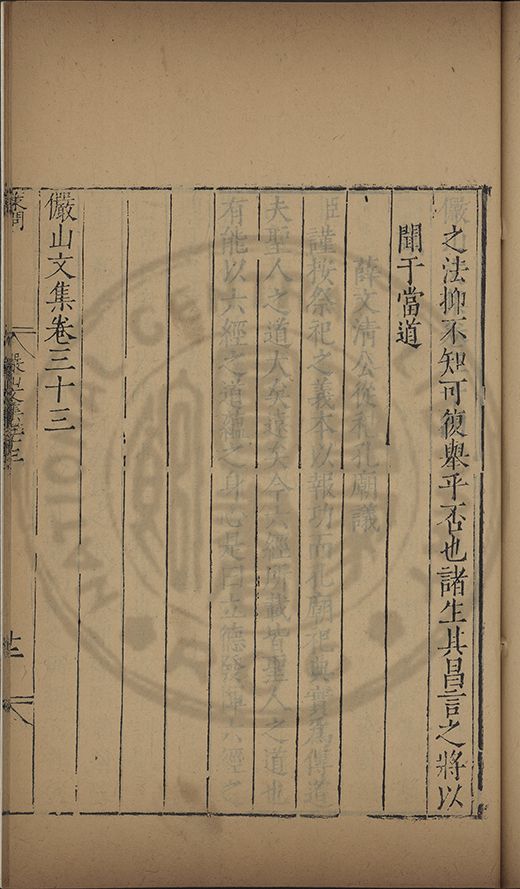 之法抑不知可復舉乎否也諸生其昌言之將以
聞于當道
薛文清公從祀孔廟議
臣謹按祭祀之義本以報功而孔廟祀典實為傳道
夫聖人之道大矣遠矣今六經所載皆聖人之道也
有能以六經之道蘊之身心是曰立德發揮六經之
儼山文集卷三十三